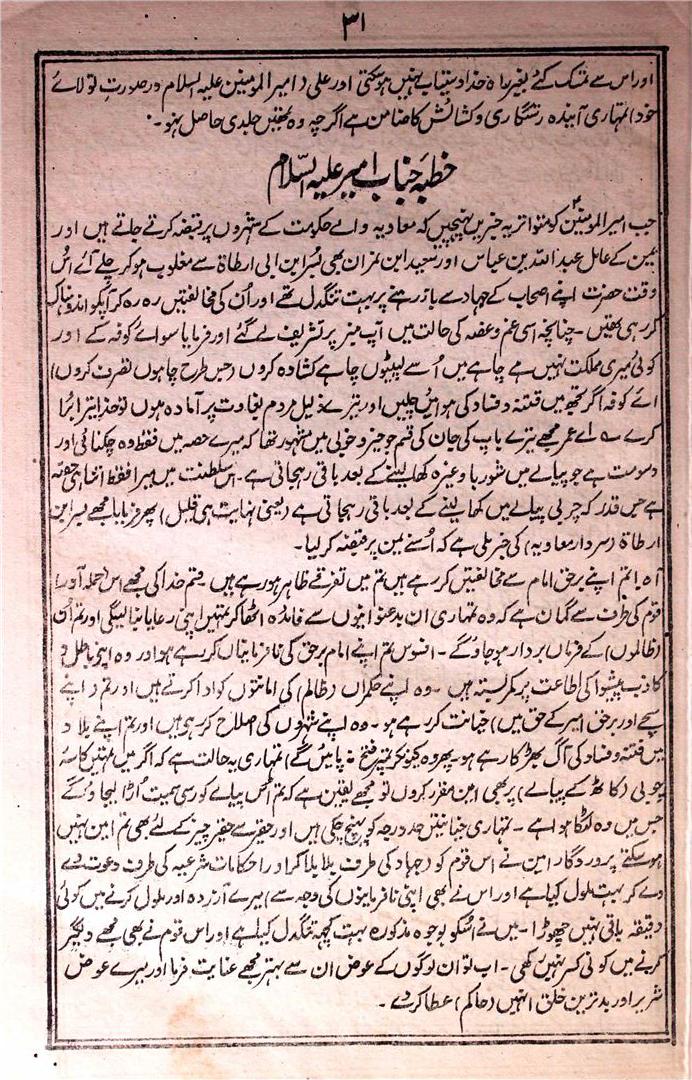 ۳۱
اور اس سے تمسک کئے بغیر راہ خدا دستیاب نہیں ہو سکتی اور علی (امیر المومنین علیہ السلام در صورت تولائے
خود) تمہاری آیندہ رستگاری و کشائش کا ضامن ہے اگرچہ وہ تمہیں جلدی حاصل نہو۔
خطبہ جناب امیر علیہ السّلام
جب امیر المومنینؑ کو متواتر یہ خبریں پہنچیں کہ معاویہ والے حکومت کے شہروں پر قبضہ کرتے جاتے ہیں اور
یمن کے عامل عبد اللہ بن عباس اور سعید ابن نمران بھی بسر ابن ابی ارطاۃ سے مغلوب ہو کر چلے آئے اُس
وقت حضرت اپنے اصحاب کے جہاد سے باز رہنے پر بہت تنگدل تھے اور اُن کی مخالفتیں رہ رہ کر آپکو اندوہناک
کر رہی تھیں۔ چنانچہ اسی غم و غصہ کی حالت میں آپ منبر پر تشریف لے گئے اور فرمایا سوائے کوفہ کے اور
کوئی میری مملکت نہیں ہے چاہے میں اُسے لپیٹوں چاہے کشادہ کروں (جس طرح چاہوں تصرف کروں)
اے کوفہ اگر تجھ میں فتنہ و فساد کی ہوائیں چلیں اور تیرے ذلیل مردم بغاوت پر آمادہ ہوں تو خدا تیرا بُرا
کرے۔ اے عمر مجھے تیرے باپ کی جان کی قسم جو خیر و خوبی میں مشہور تھا کہ میرے حصہ میں فقط وہ چکنائی اور
دسومت ہے جو پیالے میں شوربا وغیرہ کھا لینے کے بعد باقی رہجاتی ہے۔ اس سلطنت میں میرا فقط اتنا ہی حصہ
ہے جس قدر کہ چربی پیالے میں کھا لینے کے بعد باقی رہجاتی ہے (یعنی نہایت ہی قلیل) پھر فرمایا مجھے بسر ابن
ارطاۃ (سردار معاویہ) کی خبر ملی ہے کہ اُسنے یمن پر قبضہ کر لیا۔
آہ! تم اپنے برحق امام سے مخالفتیں کر رہے ہیں تم میں تفرقے ظاہر ہو رہے ہیں۔ قسم خدا کی مجھے اس (حملہ آور)
قوم کی طرف سے گمان ہے کہ وہ تمہاری ان بدعنوانیوں سے فائدہ اٹھا کر تمہیں اپنی رعایا بنا لیگی اور تم اُن
(ظالموں) کے فرماں بردار ہو جاؤ گے۔ افسوس تم اپنے امام برحق کی نافرمانیاں کر رہے ہو اور وہ اپنی باطل و
کاذب پیشوا کی اطاعت پر کمر بستہ ہیں۔ وہ اپنے حکمراں (ظالم) کی امانتوں کو ادا کرتے ہیں اور تم (اپنے
سچے اور برحق امیر کے حق میں) خیانت کر رہے ہو۔ وہ اپنے شہروں کی اصلاح کر رہی ہیں اور تم اپنے بلاد
میں فتنہ و فساد کی آگ بھڑکا رہے ہو۔ پھر وہ کیونکر تمپر فتح نہ پائیں گے) تمہاری یہ حالت ہے کہ اگر میں تمہیں کاسۂ
چوبی (کاٹھ کے پیالے) پر بھی امین مقرر کروں تو مجھے یقین ہے کہ تم اُس پیالے کو رسی سمیت اُڑا لیجاؤ گے
جس میں وہ لٹکا ہوا ہے۔ تمہاری خیانتیں حد درجہ کو پہنچ چکی ہیں اور حقیر سے حقیر چیز کے لئے بھی تم امین نہیں
ہو سکتے پروردگار امین نے اس قوم کو (جہاد کی طرف بلا بلا کر اور احکامات شرعیہ کی طرف دعوت دے
دے کر بہت ملول کیا ہے اور اس نے بھی اپنی نافرمانیوں کی وجہ سے) میرے آزردہ اور ملول کرنے میں کوئی
دقیقہ باقی نہیں چھوڑا۔ میں نے اسکو بوجوہ مذکورہ بہت کچھ تنگدل کیا ہے اور اس قوم نے بھی مجھے دلگیر
کرنے میں کوئی کسر نہیں رکھی۔ اب تو ان لوگوں کے عوض ان سے بہتر مجھے عنایت فرما اور میرے عوض
شریر اور بدترین خلق انہیں (حاکم) عطا کر دے۔